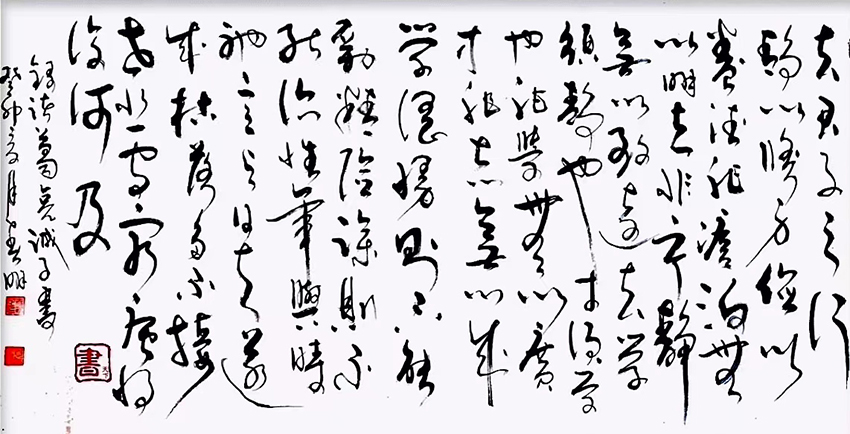 夫君子之行
静以修身俭以
養德非澹泊無
以明志非宁静
無以致遠夫学
須静也才須学
也非學無以廣
才非志無以成
学慆慢则不能
励精险躁则不
能治性年與時
驰意与日去遂
成枯落多不接
世悲守穷庐将
復何及
録诸葛亮诫子書
癸卯夏月春明
書